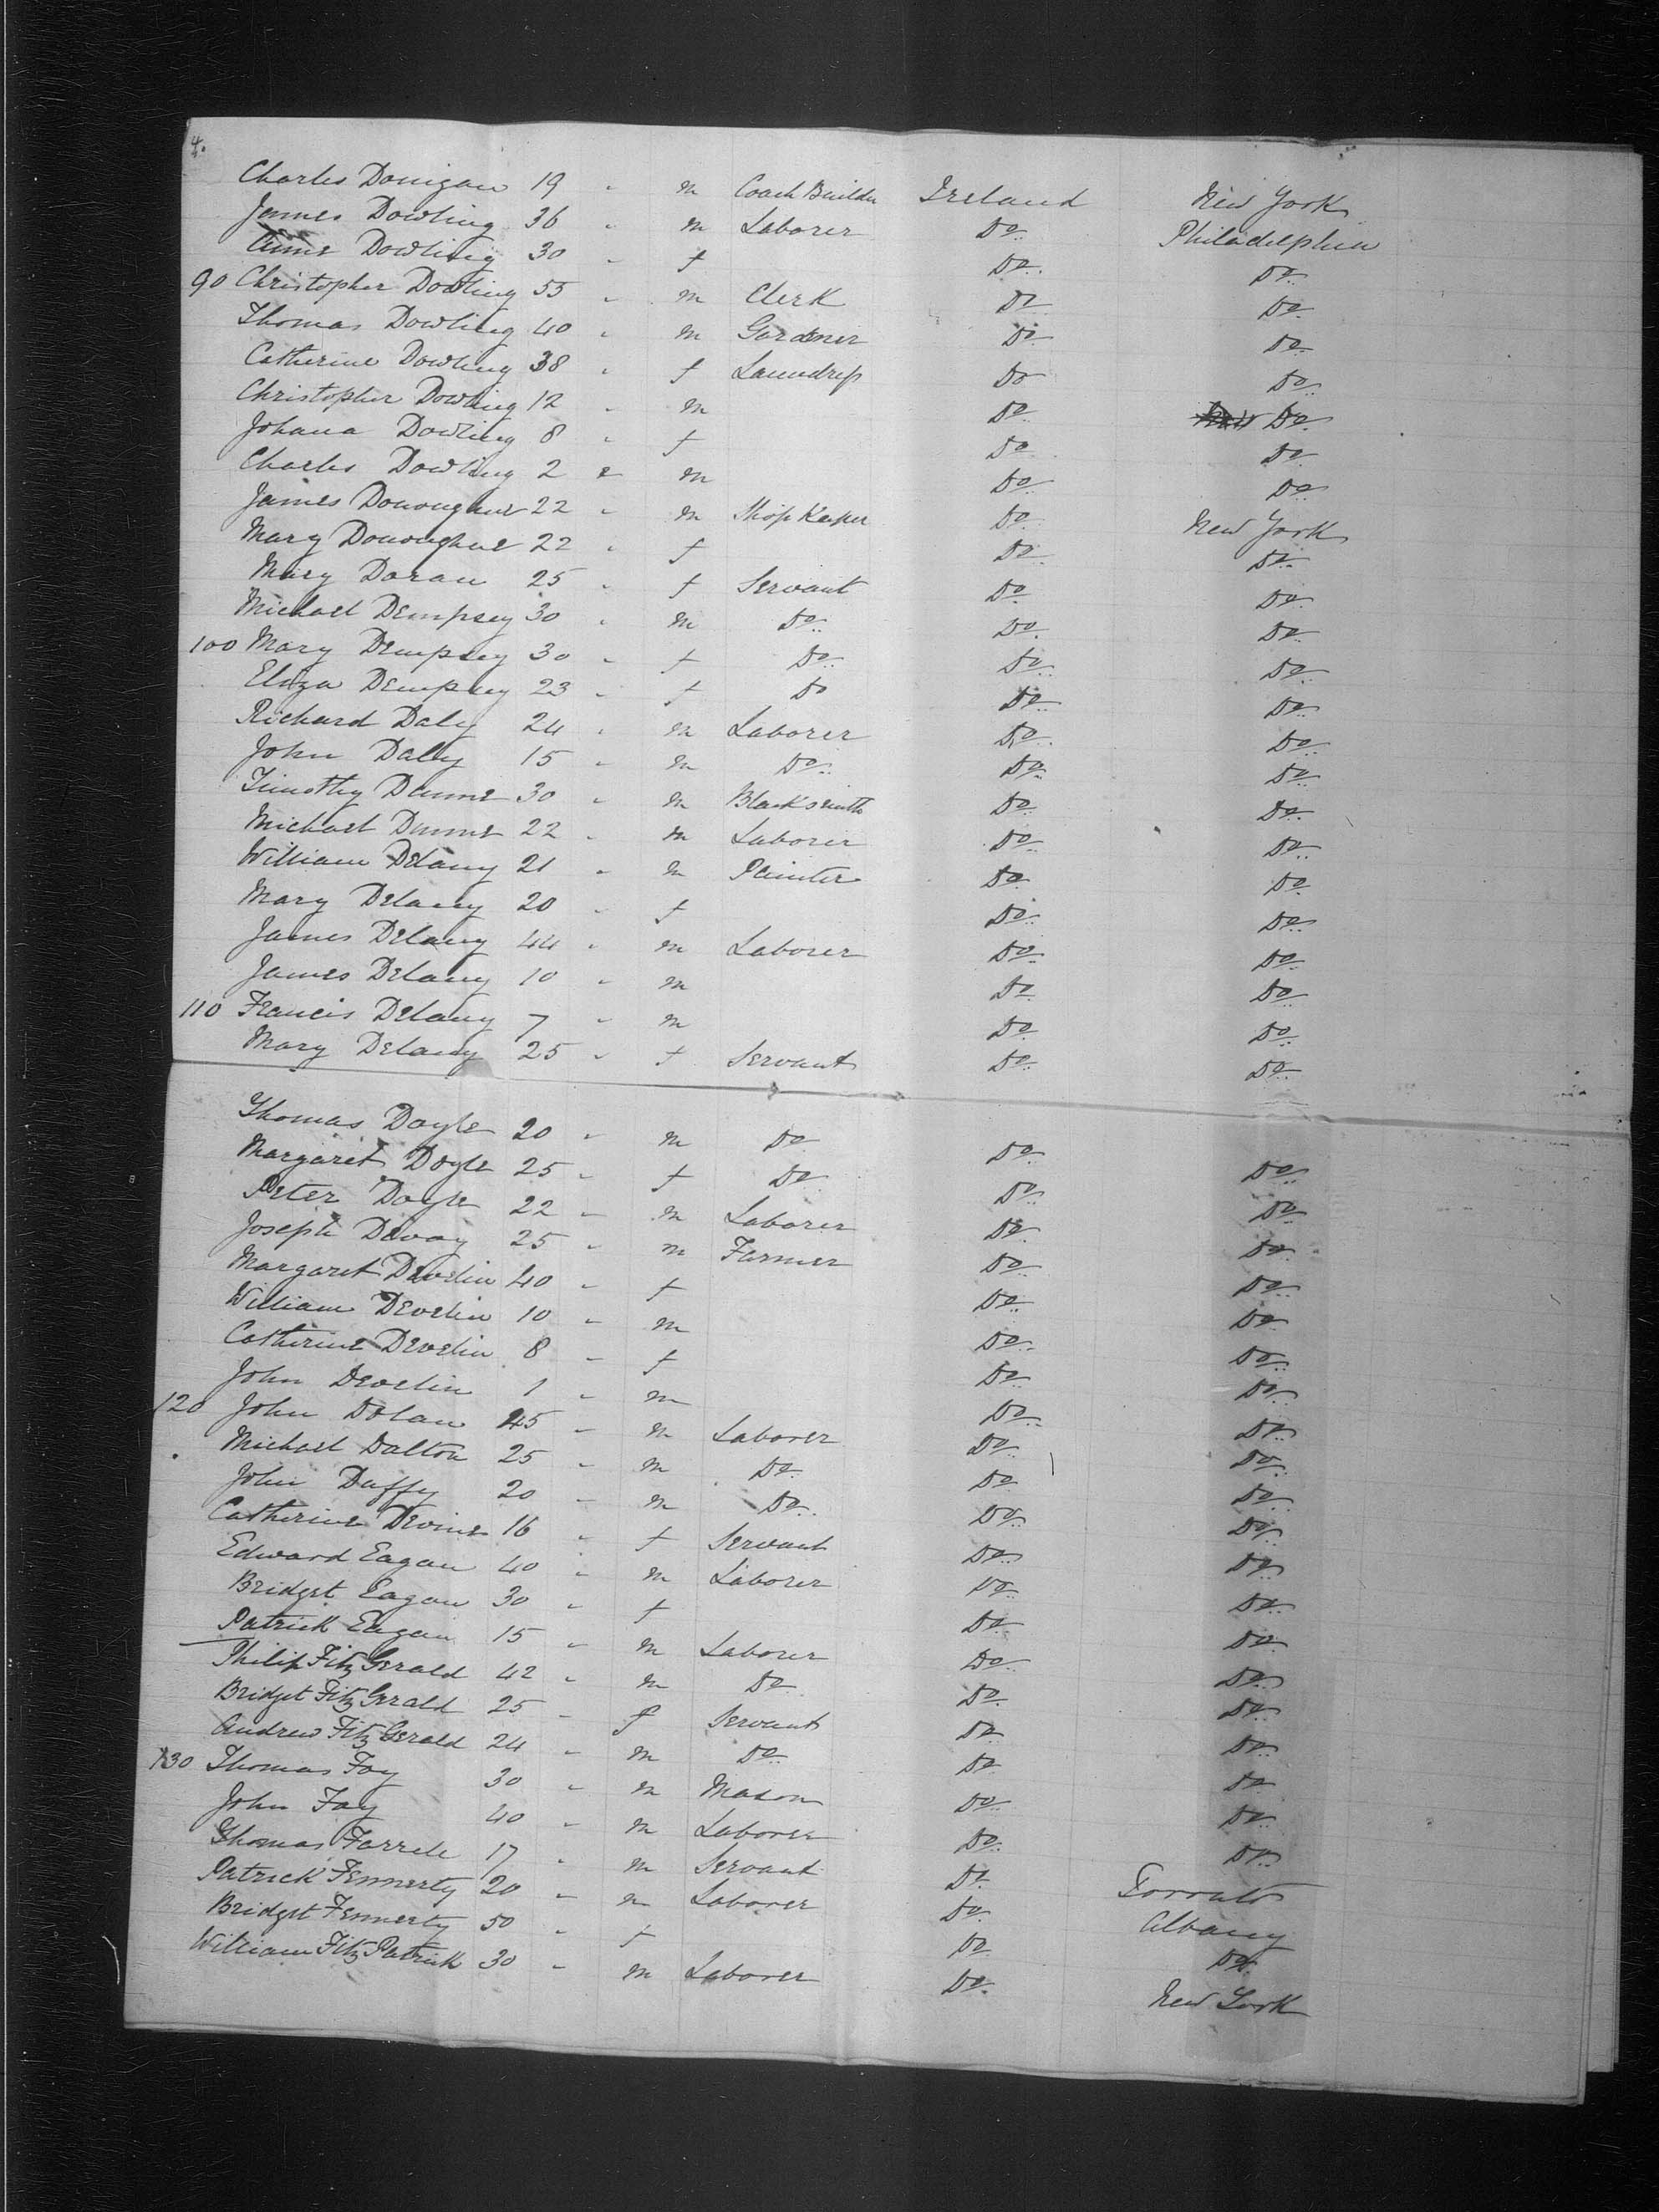 4.
Charles Donigan 19 " m Coach Builder Ireland New York
James Dowling 36 " m Laborer Do. Philadelphia
Anne Dowling 30 " f Do. Do.
90 Christopher Dowling 55 " m Clerk Do Do.
Thomas Dowling 40 " m Gardner Do Do.
Catherine Dowling 38 " f Laundress Do Do.
Christopher Dowling 12 " m Do. Do.
Johana Dowling 8 " f Do Do.
Charles Dowling 2 " m Do. Do.
James Donoughue 22 " m Shop Keeper Do. New York
Mary Donoughue 22 " f Do. Do.
Mary Doran 25 " f Servant Do. Do.
Michael Dempsey 30 " m Do. Do. Do.
100 Mary Dempsey 30 " f Do. Do. Do.
Eliza Dempsey 23 " f Do Do. Do.
Richard Daly 24 " m Laborer Do. Do.
John Daly 15 " m Do. Do. Do.
Timothy Dunne 30 " m Blacksmith Do. Do.
Michael Dunne 22 " m Laborer Do. Do.
William Delany 21 " m Painter Do. Do.
Mary Delany 20 " f Do. Do.
James Delany 44 " m Laborer Do. Do.
James Delany 10 " m Do. Do.
110 Francis Delany 7 " m Do. Do.
Mary Delany 25 " f Servant Do. Do.
Thomas Doyle 20 " m Do. Do. Do.
Margaret Doyle 25 " f Do. Do. Do.
Peter Doyle 22 " m Laborer Do. Do.
Joseph Devoy 25 " m Farmer Do. Do.
Margaret Develin 40 " f Do. Do.
William Develin 10 " m Do. Do.
Catherine Develin 8 " f Do. Do.
John Develin 1 " m Do. Do.
120 John Dolan 45 " m Laborer Do. Do.
Michael Dalton 25 " m Do. Do. Do.
John Duffy 20 " m Do. Do. Do.
Catherine Devine 16 " f Servant Do. Do.
Edward Eagan 40 " m Laborer Do. Do.
Bridget Eagan 30 " f Do. Do.
Patrick Eagan 15 " m Laborer Do. Do.
Philip FitzGerald 42 " m Do. Do. Do.
Bridget FitzGerald 25 " f Servant Do. Do.
Andrew FitzGerald 24 " m Do. Do. Do.
130 Thomas Foy 30 " m Mason Do. Do.
John Fay 40 " m Laborer Do. Do.
Thomas Farrele 17 " m Servant Do. Torronto
Patrick Fennerty 20 " m Laborer Do. Albany
Bridget Fennerty 50 " f Do. Do.
William FitzPatrick 30 " m Laborer Do. New York